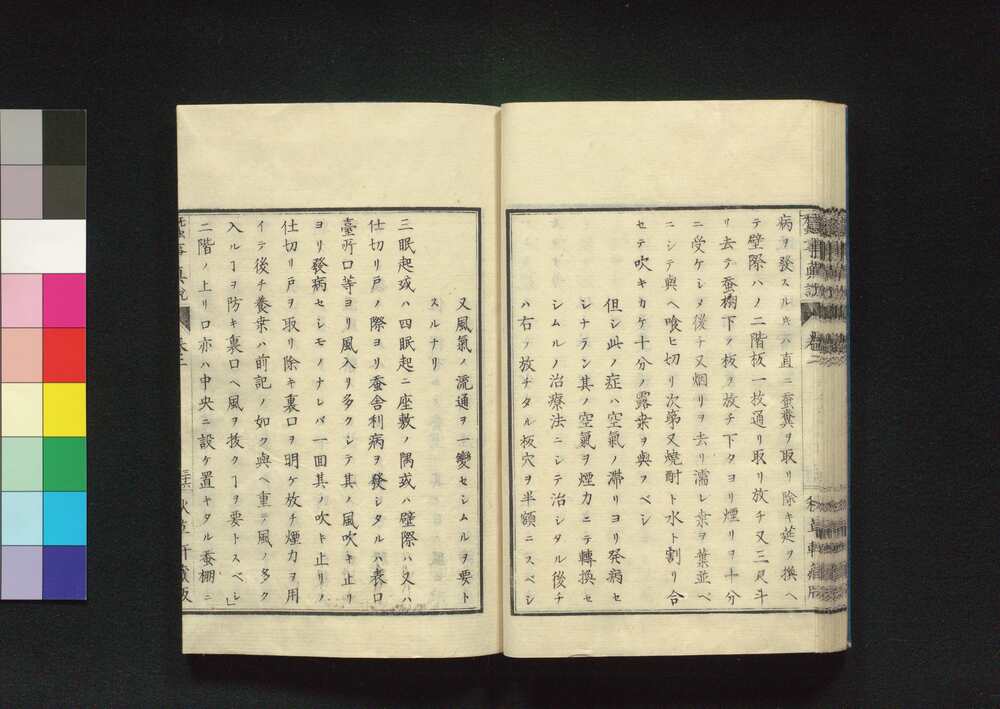 病ヲ發スル片ハ直ニ蚕糞ヲ取リ除キ莚ヲ換ヘ
テ壁際ハノ二階板一枚通リ取リ放チ又三尺斗
リ去テ蚕棚下ノ板ヲ放チ下タヨリ煙リヲ十分
ニ受ケシメ後チ又烟リヲ去リ濡レ桒ヲ葉並ベ
ニシテ與ヘ喰ヒ切リ次第又燒酎ト水ト割リ合
セテ吹キカケ十分ノ露桒ヲ與フベシ
但シ此ノ症ハ空氣ノ滯リヨリ発病セ
シナラン其ノ空氣ヲ煙力ニテ轉換セ
シムルノ治療法ニシテ治シタル後チ
ハ右ノ放チタル板穴ヲ半額ニスベシ
又風氣ノ流通ヲ一變セシムルヲ要ト
スルナリ
三眠起或ハ四眠起ニ座敷ノ隅或ハ壁際ハ又ハ
仕切リ戸ノ際ヨリ蚕舎利病ヲ發シタルハ表口
臺所口等ヨリ風入リ多クシテ其ノ風吹キ止リ
ヨリ發病セシモノナレバ一面其ノ吹キ止リノ
仕切リ戸ヲ取リ除キ裏口ヲ明ケ放チ煙力ヲ用
イテ後チ養桒ハ前記ノ如ク與ヘ重テ風ノ多ク
入ルヿヲ防キ裏口ヘ風ヲ拔クヿヲ要トスベシ」
二階ノ上リ口亦ハ中央ニ設ケ置キタル蚕棚ニ